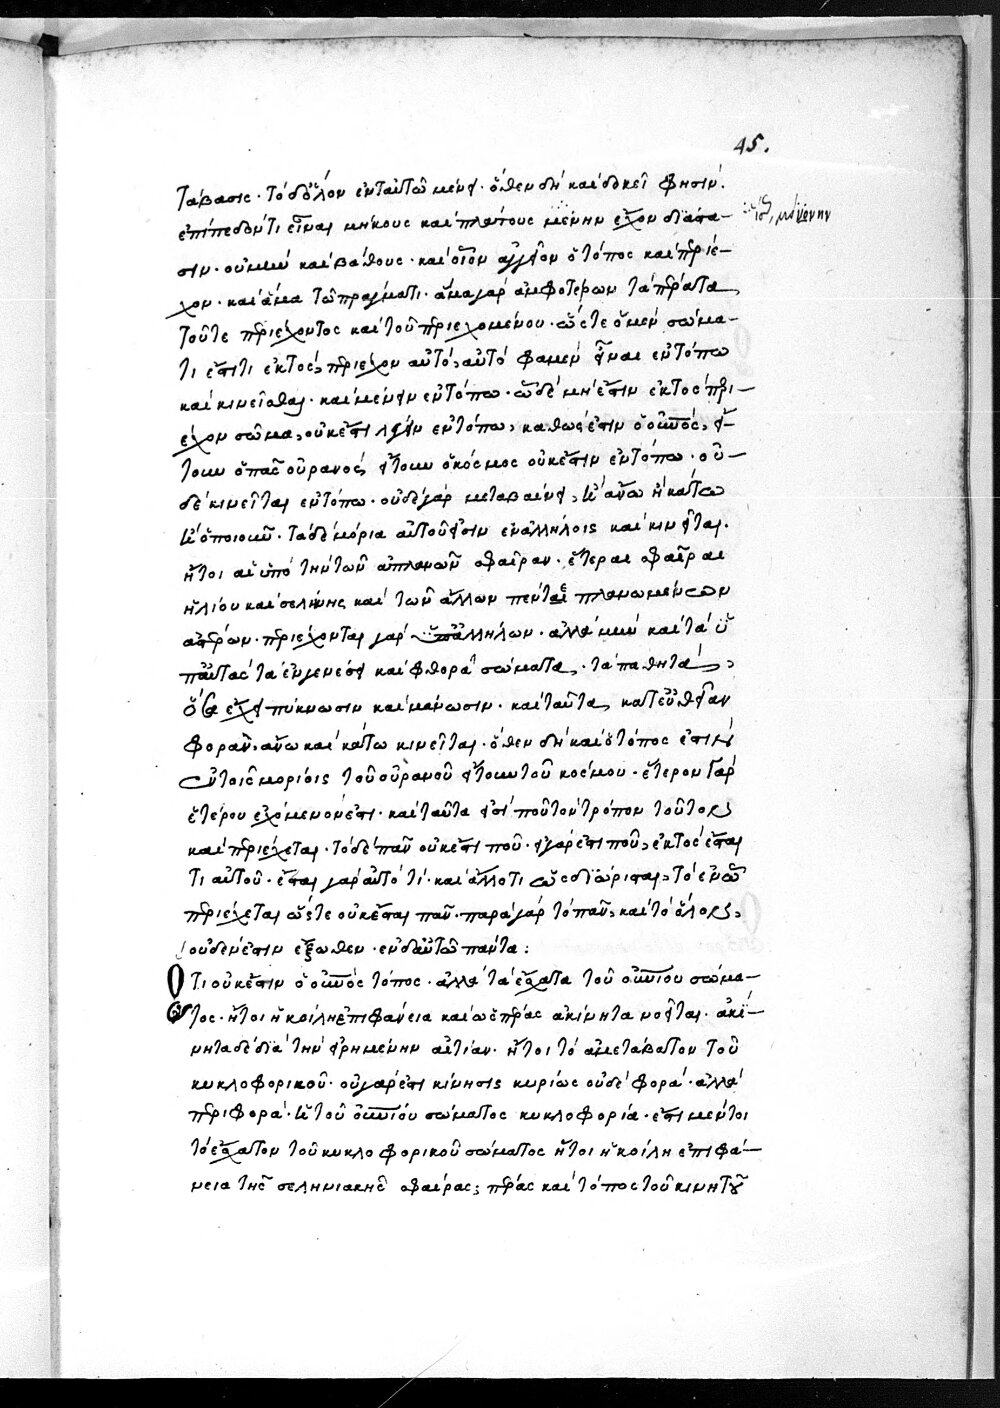 45.
τάβασις· τὸ δὲ ὅλον ἐν ταὐτῷ μένει· ὅθεν δὴ καὶ δοκεῖ φησὶν
ἐπίπεδόν τι εἶναι μήκους καὶ πλάτους μένην ἔχον διάστα-
μόνην
σιν· οὐ μὴν καὶ βάθους· καὶ οἷον ἀγγεῖον ὁ τόπος καὶ περιέ-
χον· καὶ ἅμα τῷ πράγματι· ἅμα γὰρ ἀμφοτέρων τὰ πέρατα
τοῦτε περιέχοντος καὶ τοῦ περιεχομένου· ὥστε ὃ μὲν σώμα-
τι ἔστι τι ἐκτὸς, περιέχον αὐτό, αὐτό φαμεν εἶναι ἐν τόπω
καὶ κινεῖσθαι· καὶ μένειν ἐν τόπω· ὧ δὲ μή ἐστιν ἐκτὸς περι-
έχον σῶμα, οὐκέτι λέγειν ἐν τόπω, καθώς ἐστιν ὁ οὐνός, εἴ-
τουν ὁ πᾶς οὐρανός, εἴτουν ὁ κόσμος οὐκ ἔστιν ἐν τόπω· οὐ-
δὲ κινεῖται ἐν τόπω· οὐδὲ γὰρ μεταβαίνει, ἢ ἄνω ἢ κάτω
ἢ ὁποιοοῦν· τὰ δὲ μόρια αὐτοῦ εἰσὶν ἐν ἀλλήλοις καὶ κινεῖται·
ἤτοι αἱ ὑπὸ τὴν τῶν ἀπλανῶν σφαῖραν· ἕτεραι σφαῖραι
ἡλίου καὶ σελήνης καὶ τῶν ἄλλων πέντε πλανωμένων
ἀστέρων· περιέχονται γὰρ ὑπ' ἀλλήλων· ἀλλὰ μὴν καὶ τὰ ὑ
πὸ αὐτὰς τὰ ἐν γενέσει καὶ φθορᾷ σώματα, τὰ παθητά,
ὅσα ἔχει πύκνωσιν καὶ μάνωσιν· καὶ ταῦτα κατ' εὐθεῖαν
φορὰν, ἄνω καὶ κάτω κινεῖται· ὅθεν δὴ καὶ ὁ τόπος ἐστὶν
ἐν τοῖς μορίοις τοῦ οὐρανοῦ εἴτουν τοῦ κόσμου· ἕτερον γὰρ
ἑτέρου ἐχόμενον ἐστι· καὶ ταῦτα εἰσί που τὸν τρόπον τοῦτον
καὶ περιέχεται· τὸ δὲ πᾶν οὐκ ἔστι που· εἰ γάρ ἐστι που, ἐκτὸς ἔσται
τι αὐτοῦ· ἔσται γὰρ αὐτό τι· καὶ ἄλλο τι ὡς διώρισται, τὸ ἐν ᾧ
περιέχεται ὥστε οὐκ ἔσται πᾶν· παρὰ γὰρ τὸ πᾶν, καὶ τὸ ὅλον,
οὐδέν ἐστιν ἔξωθεν· ἐν δὲ αὐτῷ πάντα:
Ὅτι οὐκ ἔστιν ὁ οὐνὸς τόπος· ἀλλὰ τὰ ἔσχατα τοῦ οὐνίου σώμα-
τος· ἤτοι ἡ κοίλη ἐπιφάνεια καὶ ὡς πέρας ἀκίνητα νοεῖται· ἀκί-
νητα δὲ διὰ τὴν εἰρημένην αἰτίαν· ἤτοι τὸ ἀμετάβατον τοῦ
κυκλοφορικοῦ· οὐ γάρ ἐστι κίνησις κυρίως οὐδὲ φορά· ἀλλὰ
περιφορὰ· ἡ τοῦ οὐνίου σώματος κυκλοφορία· ἔστι μέντοι
τὸ ἔσχατον τοῦ κυκλοφορικοῦ σώματος ἤτοι ἡ κοίλη ἐπιφά-
νεια τῆς σεληνιακῆς σφαίρας; πέρας καὶ τόπος τοῦ κινητοῦ